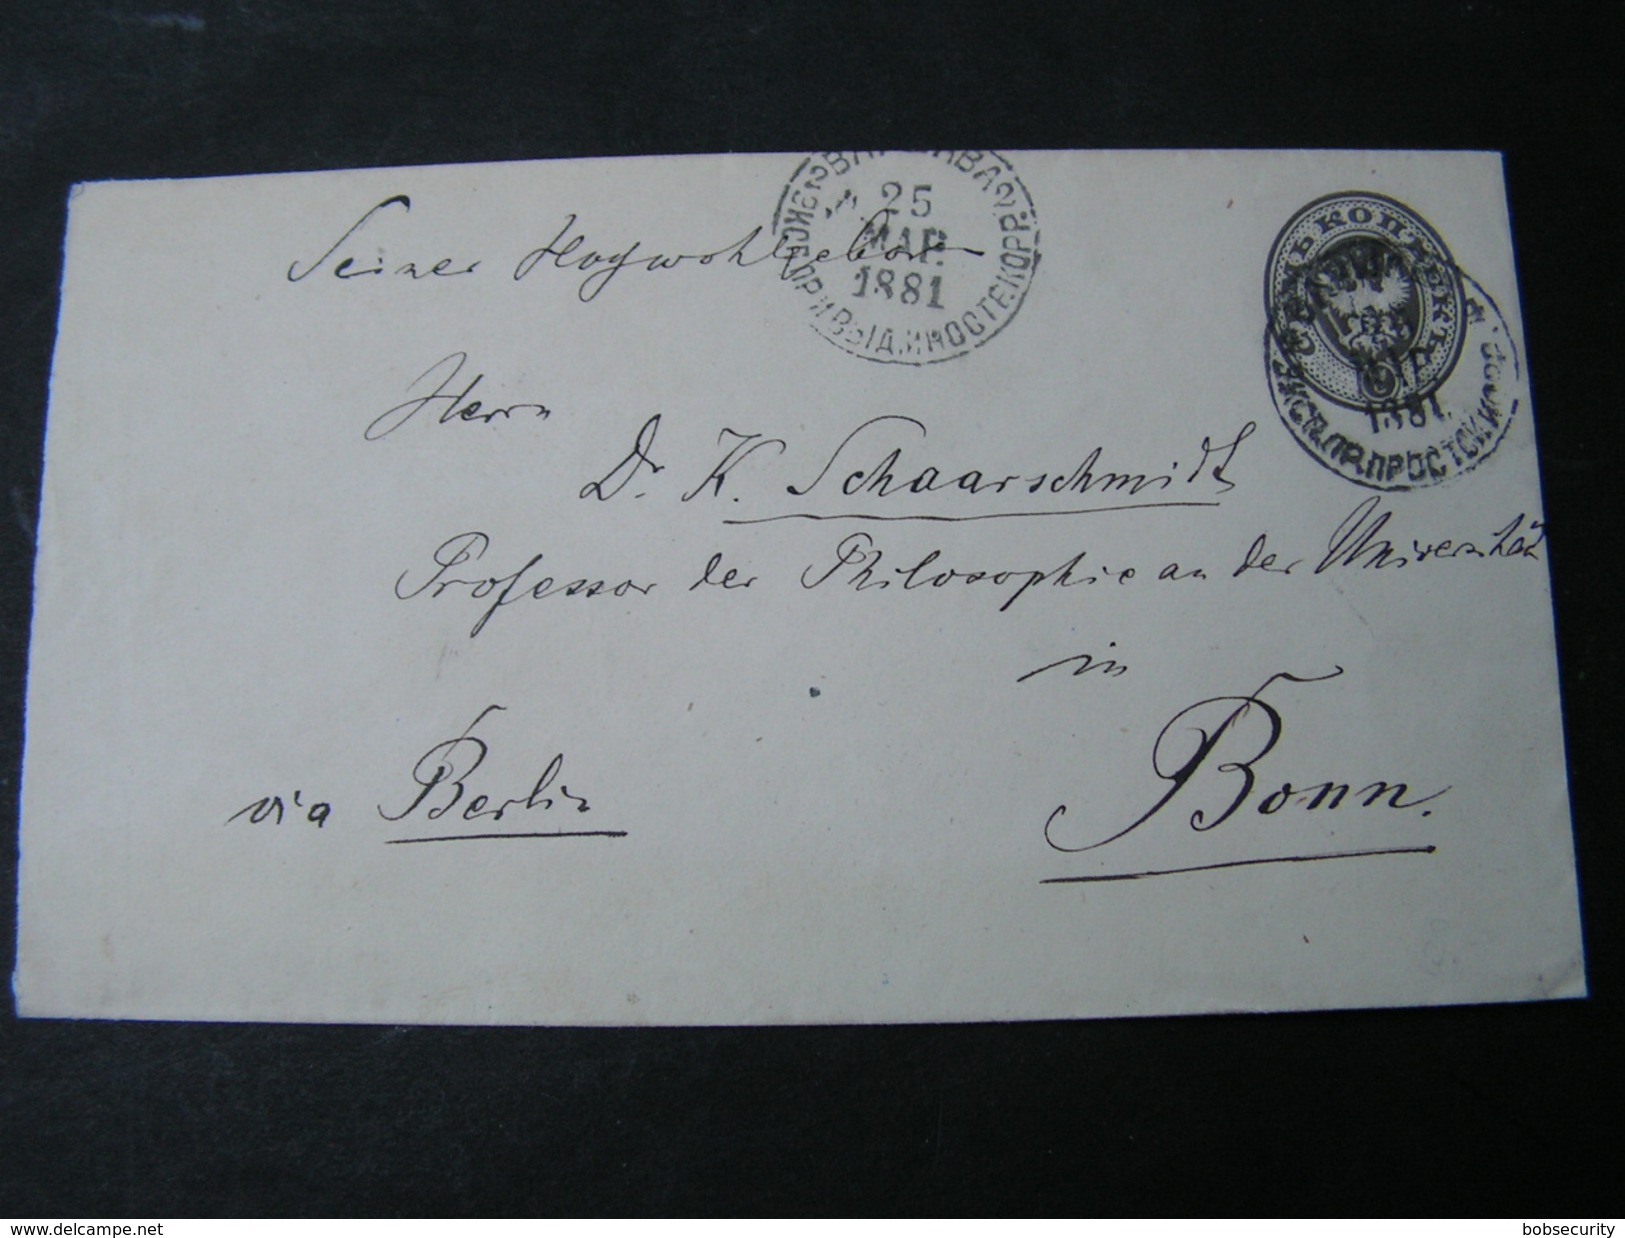 25
МАР.
1881
ЭКСП.ПРИ.ВЫД.ИНОСТ.КОРР.
СЕМЬ КОПѢЕКЪ
1881
Seiner Hochwohlgeboren
Herrn
Dr. K. Schaarschmidt
Professor der Philosophie an der Universität
in
via Berlin
Bonn.
www.delcampe.net
bobsecurity